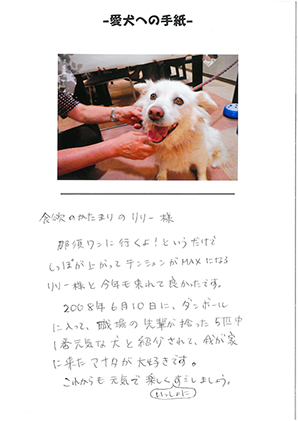 -愛犬への手紙-
食欲のかたまりの リリー 様
那須ワンに行くよ！というだけで
しっぽが上がって テンションがMAXになる
リリー様と今年も来れて良かったです。
2008年6月10日に、ダンボール
に入って、職場の先輩が拾った5匹中
1番元気な犬と紹介されて、我が家
に来たアナタが大好きです。
これからも元気で楽しくすごしましょう。
いっしょに